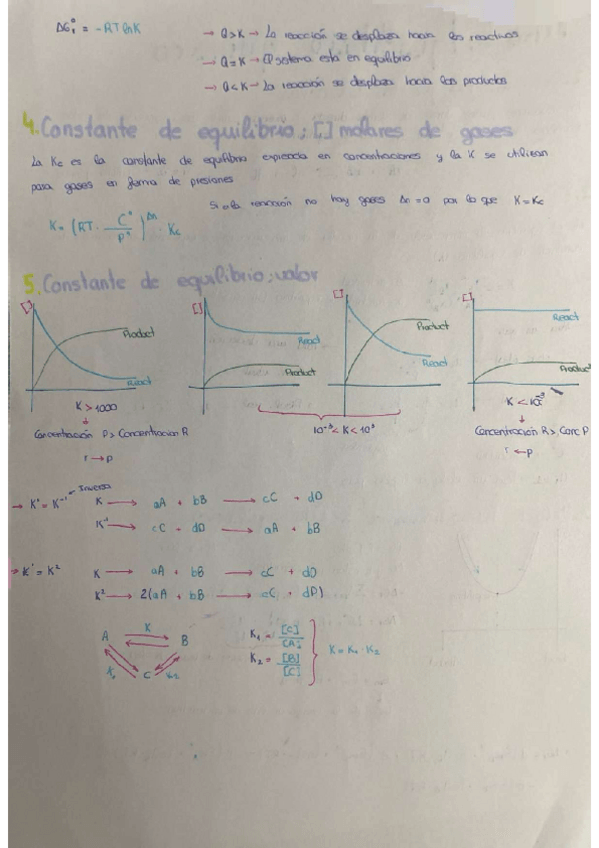 ΔG°r = -RT ln K
→ Q>K → La reacción se desplaza hacia los reactivos
→ Q=K → El sistema está en equilibrio
→ Q<K → La reacción se desplaza hacia los productos
4. Constante de equilibrio; [] molares de gases
La Kc es la constante de equilibrio expresada en concentraciones y la K se utilizan
para gases en forma de presiones
Si en la reacción no hay gases Δn=0 por lo que K=Kc
K = (RT · C°/P°)^Δn · Kc
5. Constante de equilibrio; valor
[] [] [] []
Product React
React Product
Product React
React Product
K > 1000
10⁻³ < K < 10³
K < 10⁻³
Concentración P > Concentración R
Concentración R > Conc P
r → p
r ← p
→ K' = K⁻¹ Inversa
K → aA + bB → cC + dD
K⁻¹ → cC + dD → aA + bB
→ K' = K²
K → aA + bB → cC + dD
K² → 2(aA + bB → cC + dD)
A K B
K₁ C K₂
K₁ = [C]/[A]
K₂ = [B]/[C]
K = K₁ · K₂